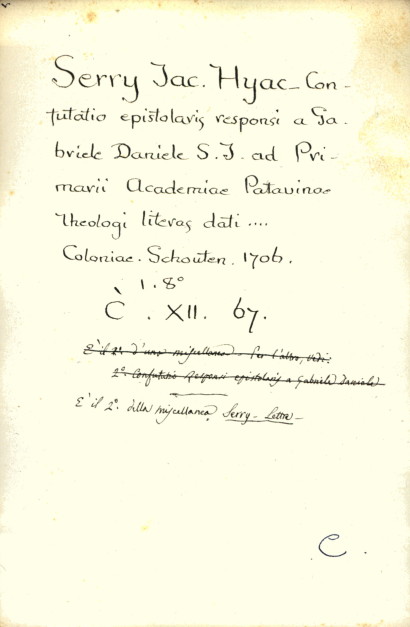 Serry Jac. Hyac_ Con-
futatio epistolaris responsi a Ga-
briele Daniele S. J. ad Pri-
marii Academiae Patavinae
theologi literas dati ....
Coloniae. Schouten. 1706.
1. 8°
C̀. XII. 67.
E' il 2°. d'una miscellanea - Per l'altro, vedi:
2°. Confutatio Responsi epistolaris a Gabriele Daniele
E' il 2°. della miscellanea Serry - Lettre -
C.